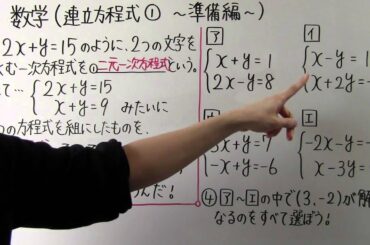 数学(連立方程式① 〜準備編〜)
2x+y=15のように、2つの文字を
む一次方程式を①二元一次方程式という。
て… 2x+y=15
x+y=9 みたいに
の方程式を組にしたものを
んだ!
ア
x+y=1
2x-y=8
イ
x-y=1
x+2y=
x+y=7
-x+y=-6
エ
-2x-y=
x-3y=
④ア〜エの中で(3,-2)が解
なるのをすべて選ぼう!